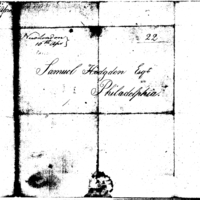 Newlondon
10th Apr
22
Samuel Hodgdon Esqr
Philadelphia